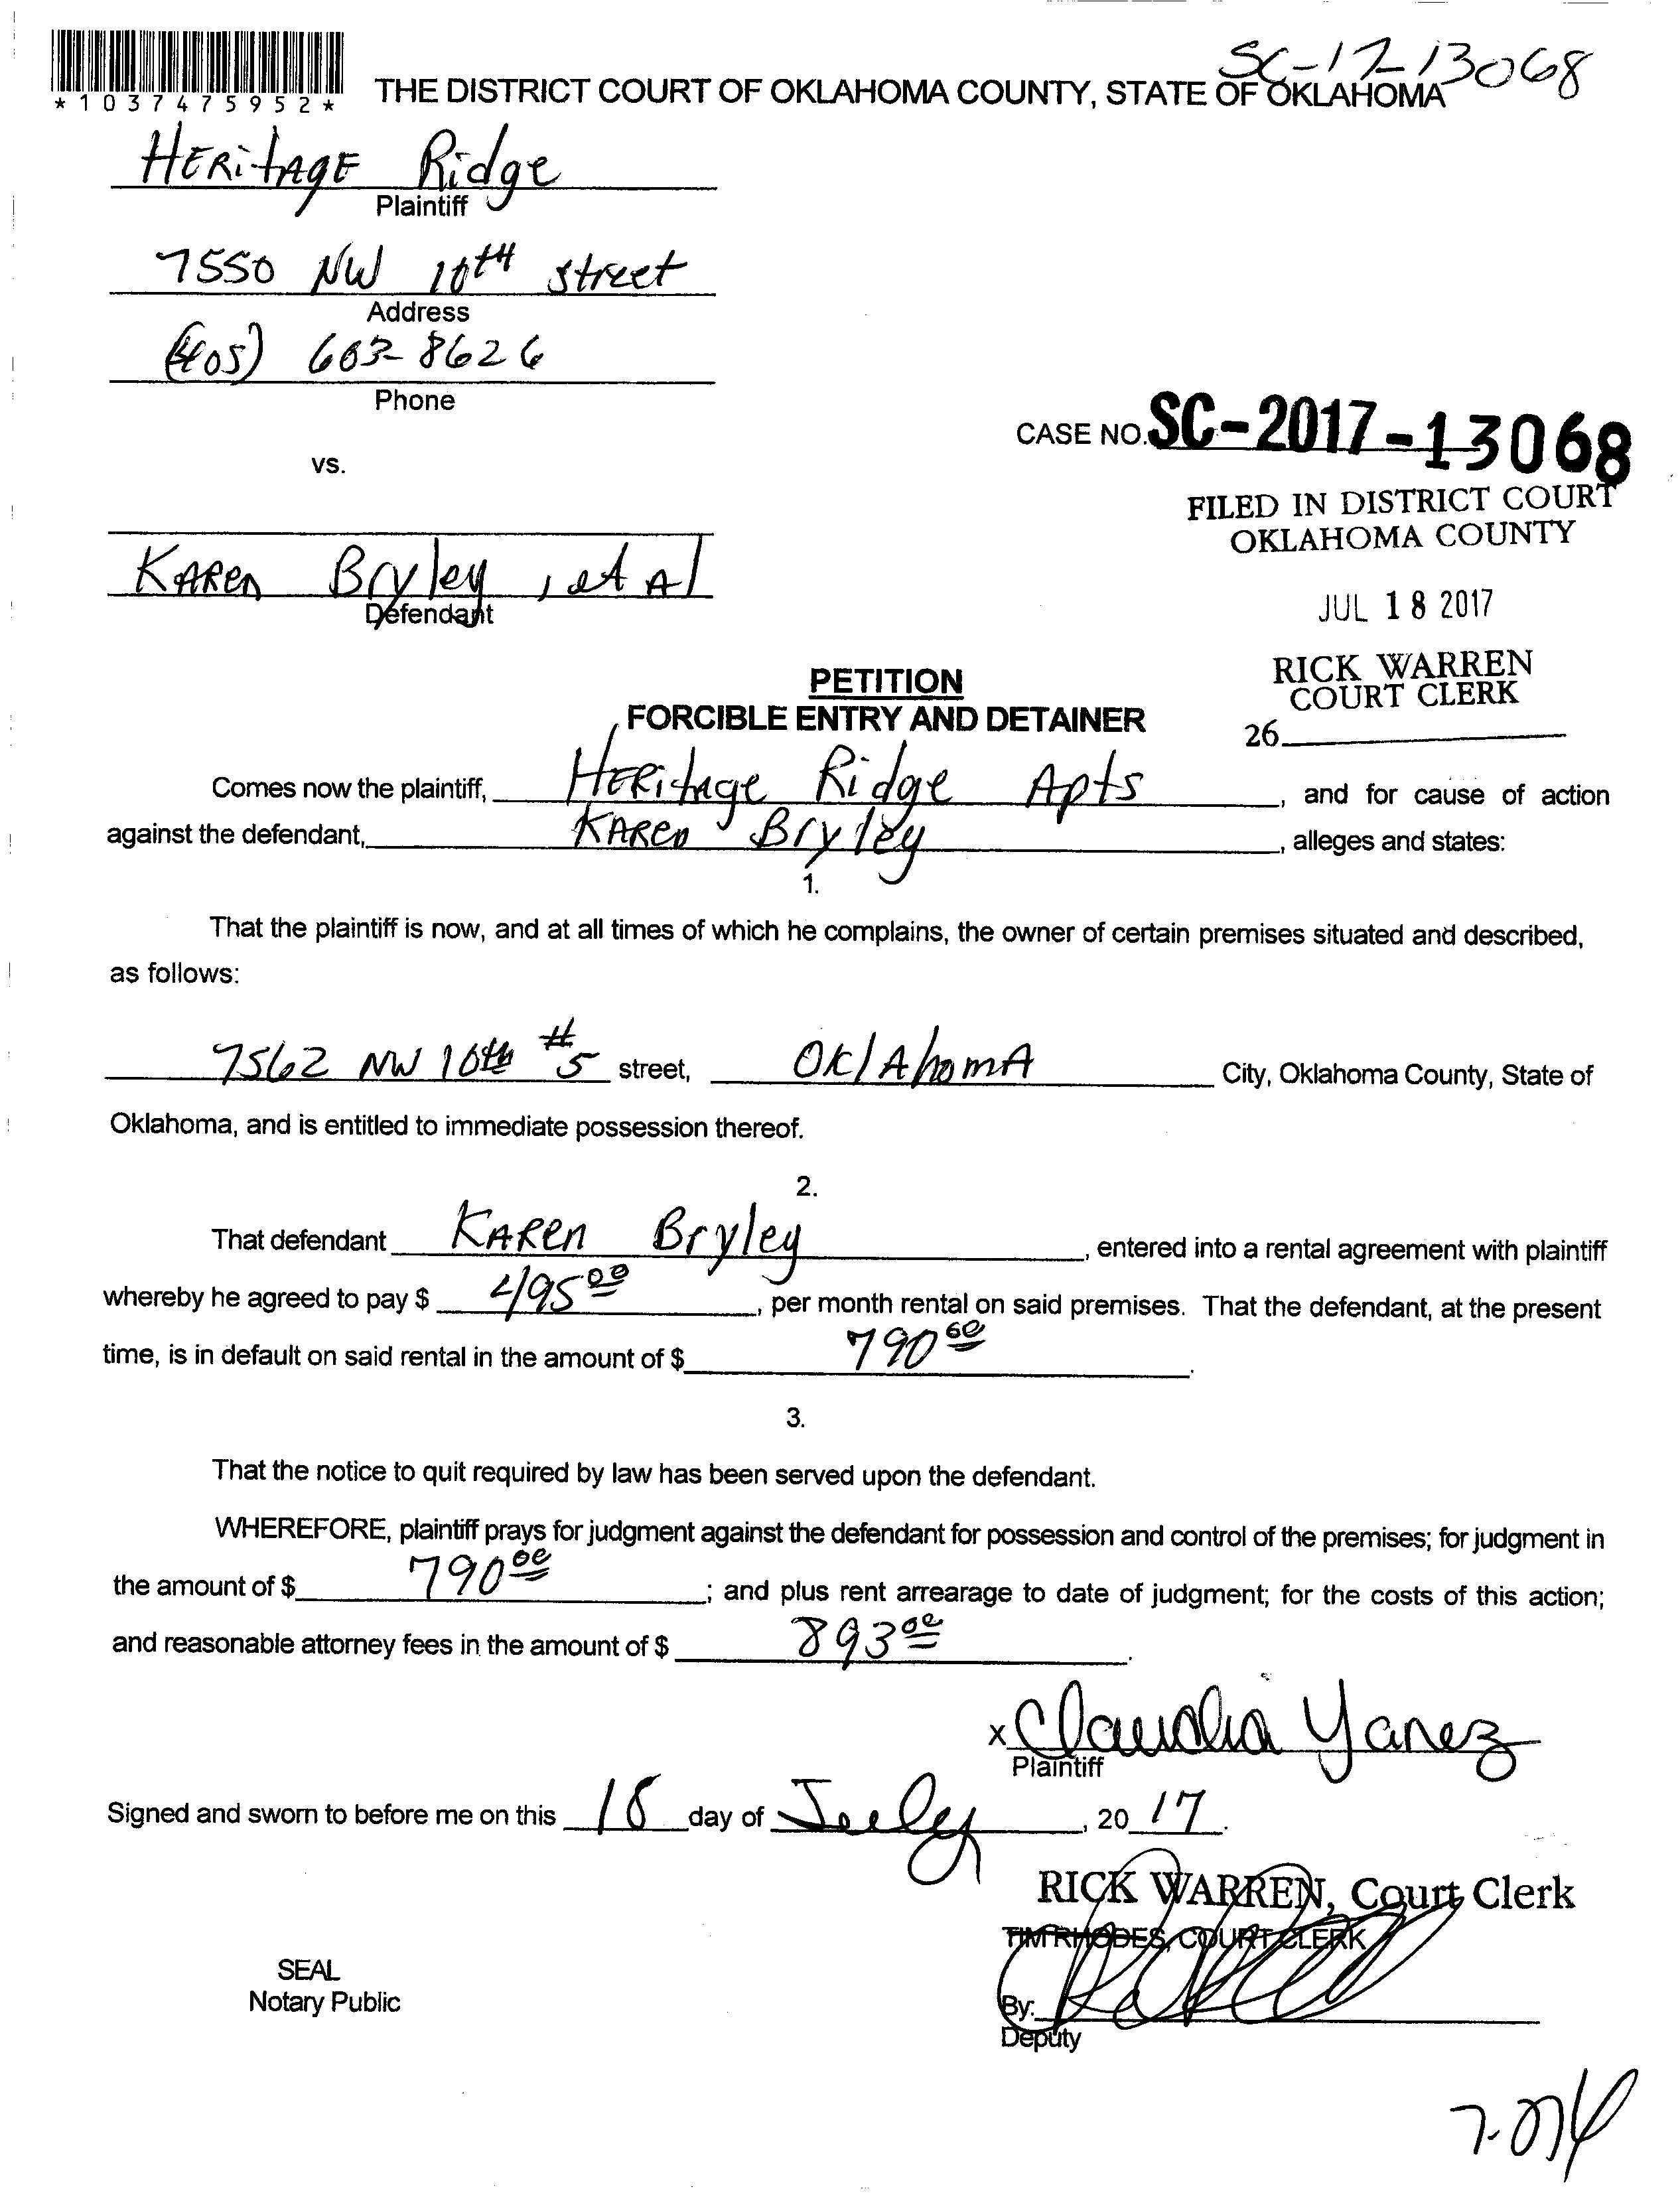 SC-17-13068
*1037475952* THE DISTRICT COURT OF OKLAHOMA COUNTY, STATE OF OKLAHOMA
HERitAgE Ridge
Plaintiff
7550 NW 10th street
Address
(405) 603-8626
Phone
CASE NO. SC-2017-13068
vs.
FILED IN DISTRICT COURT
OKLAHOMA COUNTY
KAREN Bryley, et Al
Defendant
JUL 18 2017
RICK WARREN
COURT CLERK
26
PETITION
FORCIBLE ENTRY AND DETAINER
Comes now the plaintiff, HERitAge Ridge Apts, and for cause of action
against the defendant, KAREN Bryley, alleges and states:
1.
That the plaintiff is now, and at all times of which he complains, the owner of certain premises situated and described,
as follows:
7562 NW 10th #5 street, OklAhomA City, Oklahoma County, State of
Oklahoma, and is entitled to immediate possession thereof.
2.
That defendant KAREN Bryley, entered into a rental agreement with plaintiff
whereby he agreed to pay $ 495 00, per month rental on said premises. That the defendant, at the present
time, is in default on said rental in the amount of $ 790 00.
3.
That the notice to quit required by law has been served upon the defendant.
WHEREFORE, plaintiff prays for judgment against the defendant for possession and control of the premises; for judgment in
the amount of $ 790 00; and plus rent arrearage to date of judgment; for the costs of this action;
and reasonable attorney fees in the amount of $ 893 00.
x Claudia Yanez
Plaintiff
Signed and sworn to before me on this 18 day of July, 20 17.
RICK WARREN, Court Clerk
TIM RHODES, COURT CLERK
SEAL
Notary Public
By:
Deputy